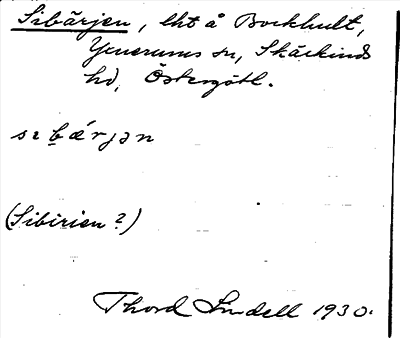 Sibärjen, lht å Bockhult,
Yxnerums sn, Skärkinds
hd, Östergötl.
sɩbǽrjən
(Sibirien?)
Thord Lindell 1930.